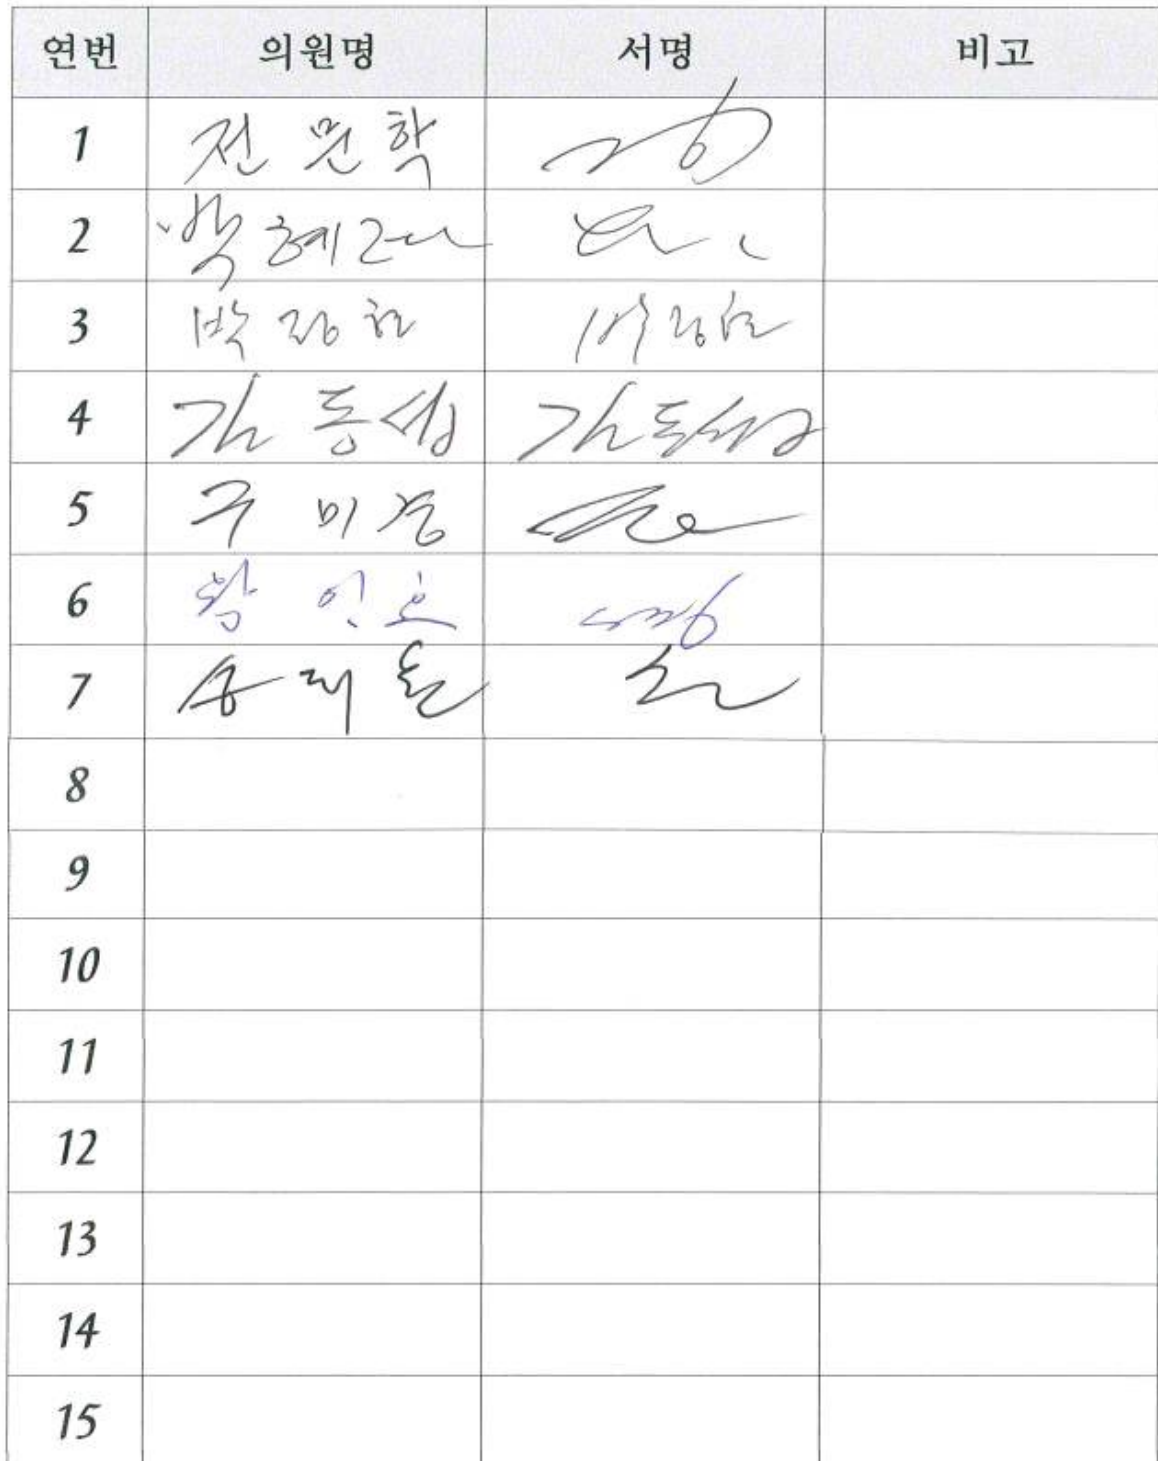 연번 의원명 서명 비고
1 전문학
2 박혜련
3 박정현
4 김동성 김동성
5 구미경
6 황인호
7 송대윤
8
9
10
11
12
13
14
15